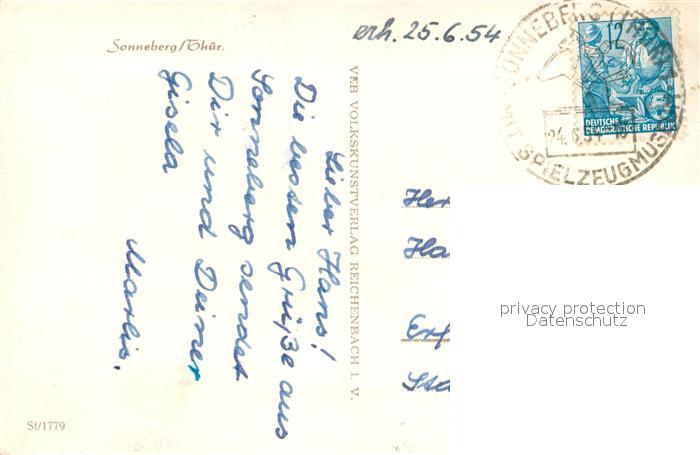 Sonneberg/Thür.
erh. 25.6.54
SONNEBERG (THÜR)
MIT SPIELZEUGMUS
24.6.54
12
DEUTSCHE
DEMOKRATISCHE REPUBLIK
Lieber Hans!
Die besten Grüße aus
Sonneberg sendet
Dir und Deiner
Gisela
Marlis.
VEB VOLKSKUNSTVERLAG REICHENBACH i. V.
Her
Ha
Erf
privacy protection
Datenschutz
St/1779